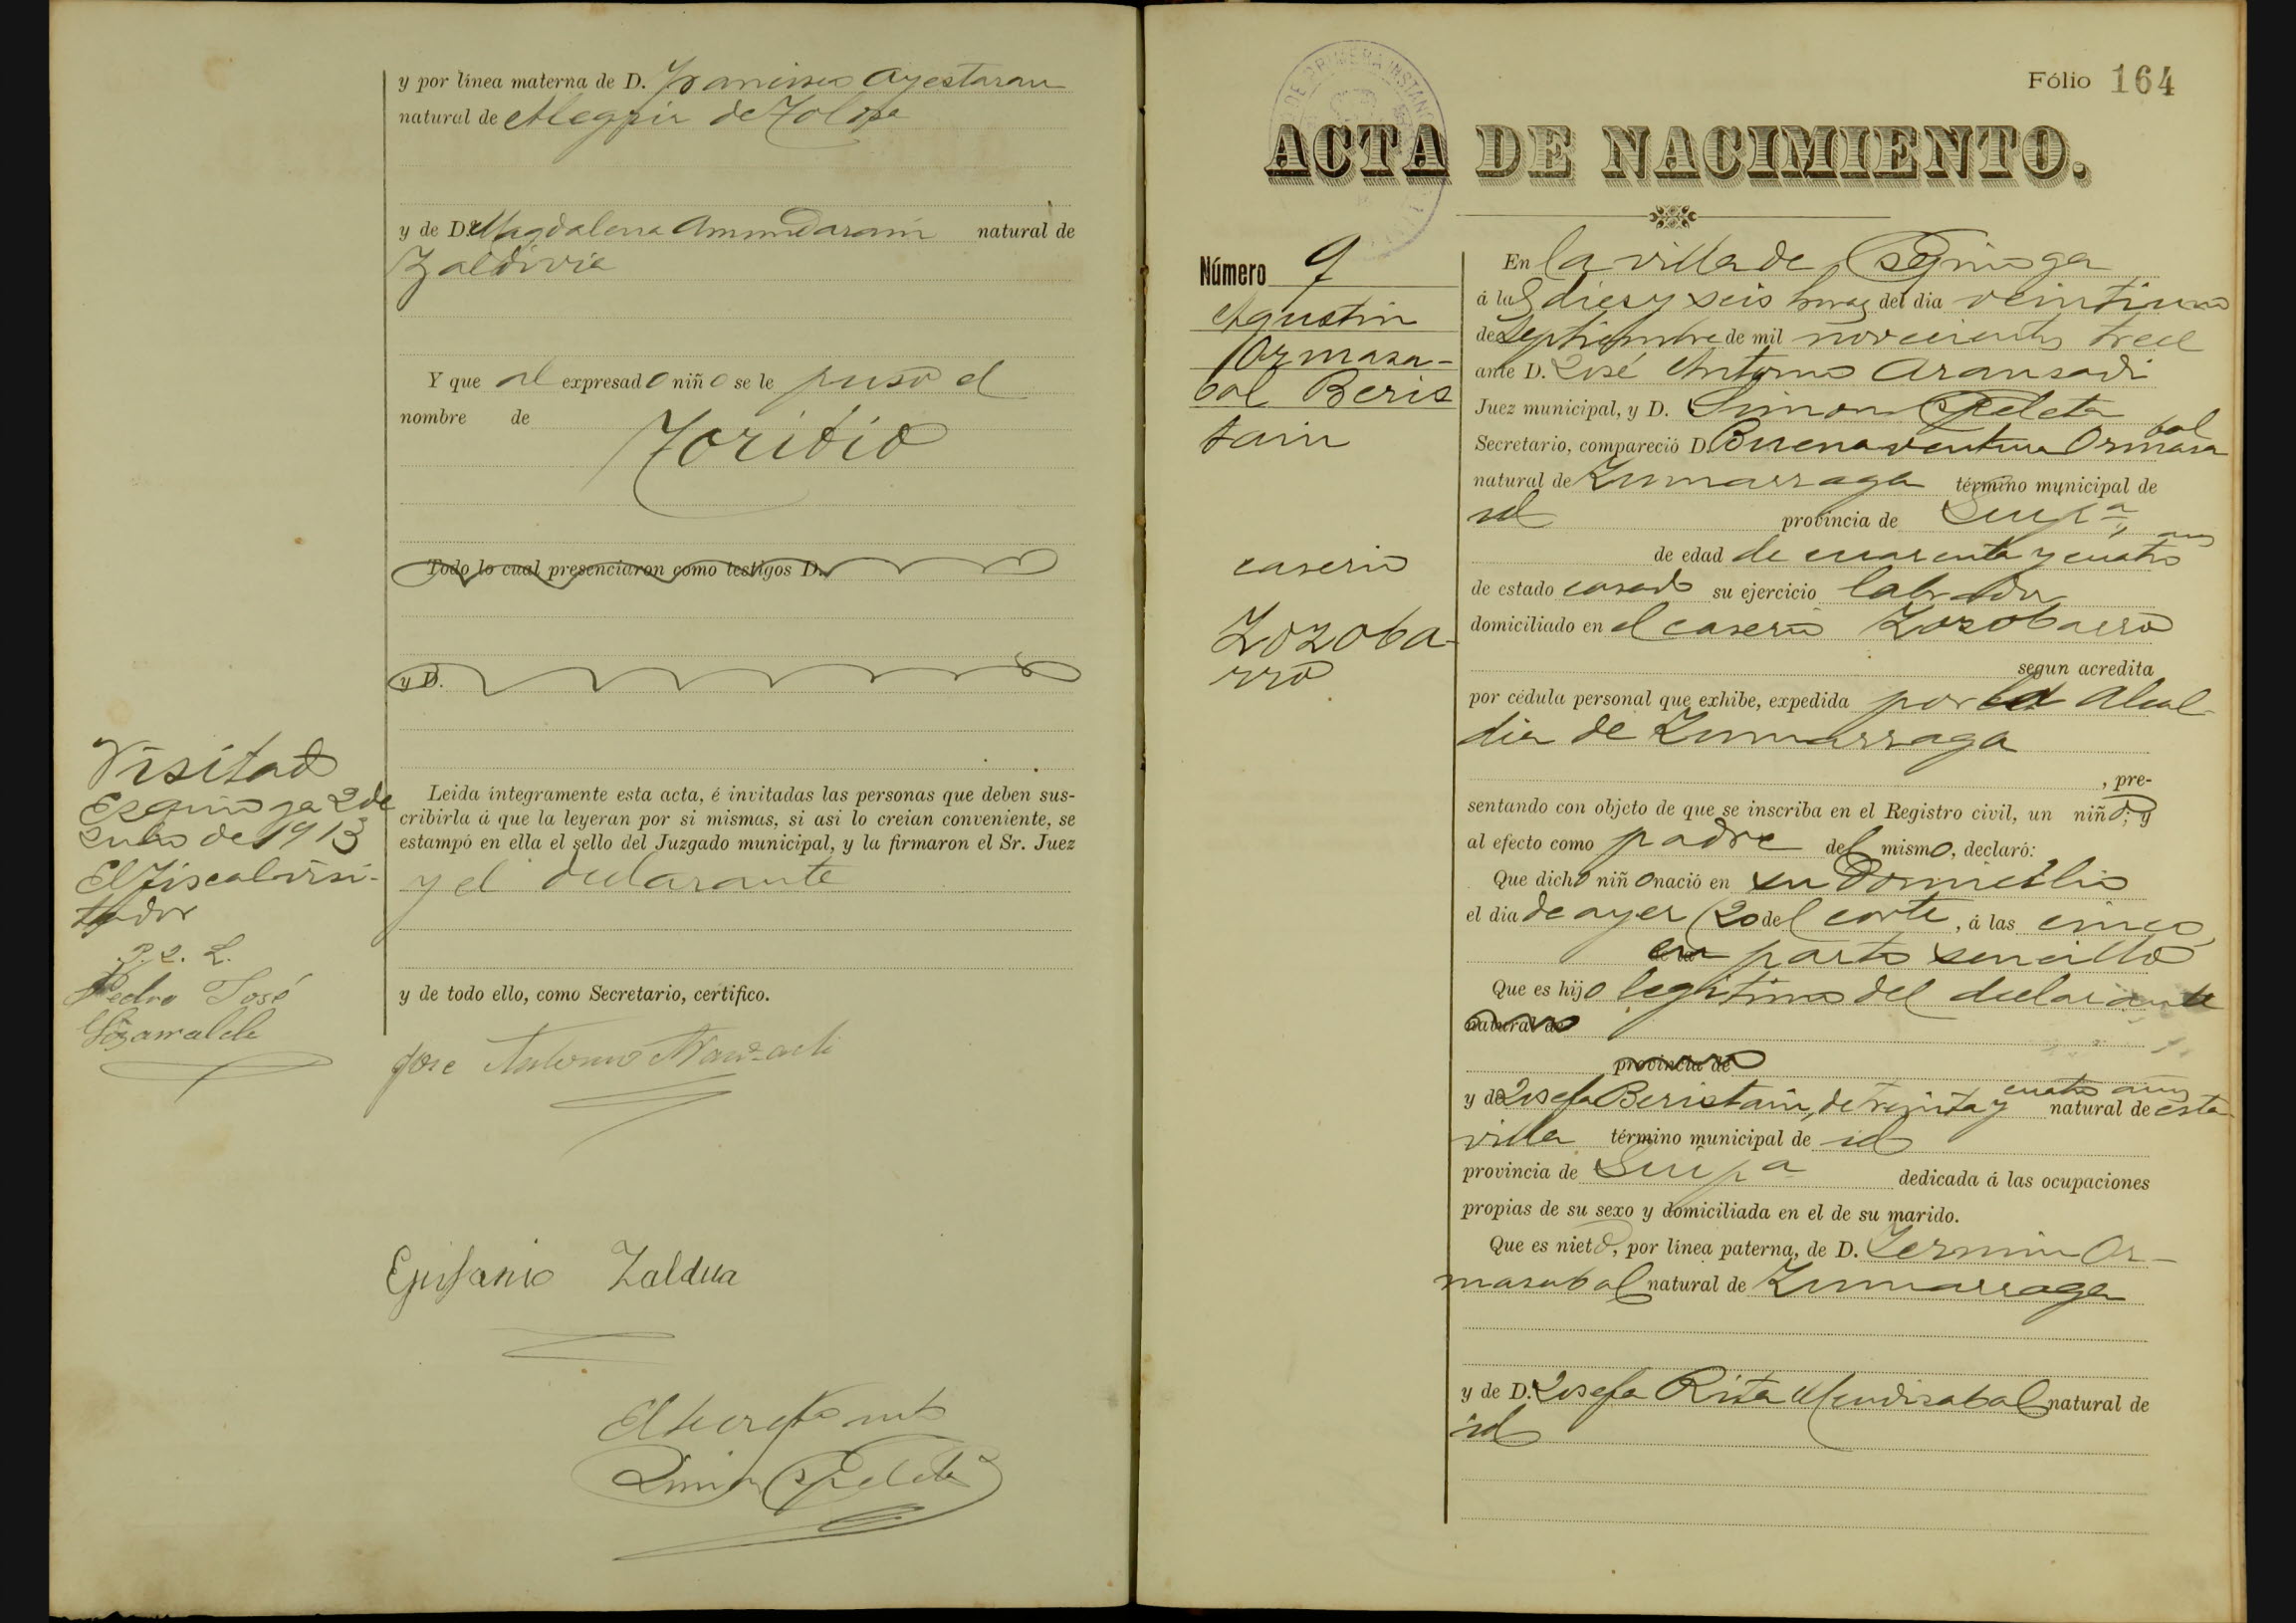 y por línea materna de D. Francisco Ayestaran
natural de Alegria de Tolosa
y de D.ª Magdalena Amundarain natural de
Zaldivia
Y que al expresado niño se le puso el
nombre de
Toribio
Todo lo cual presenciaron como testigos D.
y D.
Leida íntegramente esta acta, é invitadas las personas que deben sus-
cribirla á que la leyeran por si mismas, si asi lo creian conveniente, se
estampó en ella el sello del Juzgado municipal, y la firmaron el Sr. Juez
y el declarante
y de todo ello, como Secretario, certifico.
Jose Antonio Aranzadi
Epifanio Zaldua
El Secretario
Simon Espeleta
Visitado
Ezquioga 2 de
Julio de 1913
El Fiscal visi-
tador
Pedro José
Fólio 164
ACTA DE NACIMIENTO.
Número 9
Agustin
Ormasa-
bal Beris
tain
caserio
Zozoba-
rro
En la villa de Ezquioga
á las dies y seis horas del dia veintiuno
de Septiembre de mil novecientos trece
ante D. José Antonio Aransadi
Juez municipal, y D. Simon Espeleta
Secretario, compareció D. Buenaventura Ormasabal
natural de Zumarraga término municipal de
id provincia de Guipª
de edad de cuarenta y cuatro años
de estado casado su ejercicio labrador
domiciliado en el caserio Zozobarro
segun acredita
por cédula personal que exhibe, expedida por la Alcal-
dia de Zumarraga
, pre-
sentando con objeto de que se inscriba en el Registro civil, un niño; y
al efecto como padre del mismo, declaró:
Que dicho niño nació en su Domicilio
el dia de ayer 20 del corte, á las cinco
en parto sencillo
Que es hijo legitimo del declarante
natural de
provincia de
y de Josefa Beristain, de treinta y cuatro años natural de esta
villa término municipal de id
provincia de Guipª dedicada á las ocupaciones
propias de su sexo y domiciliada en el de su marido.
Que es nieto, por línea paterna, de D. Fermin Or-
masabal natural de Zumarraga
y de D.ª Josefa Rita Mendisabal natural de
id